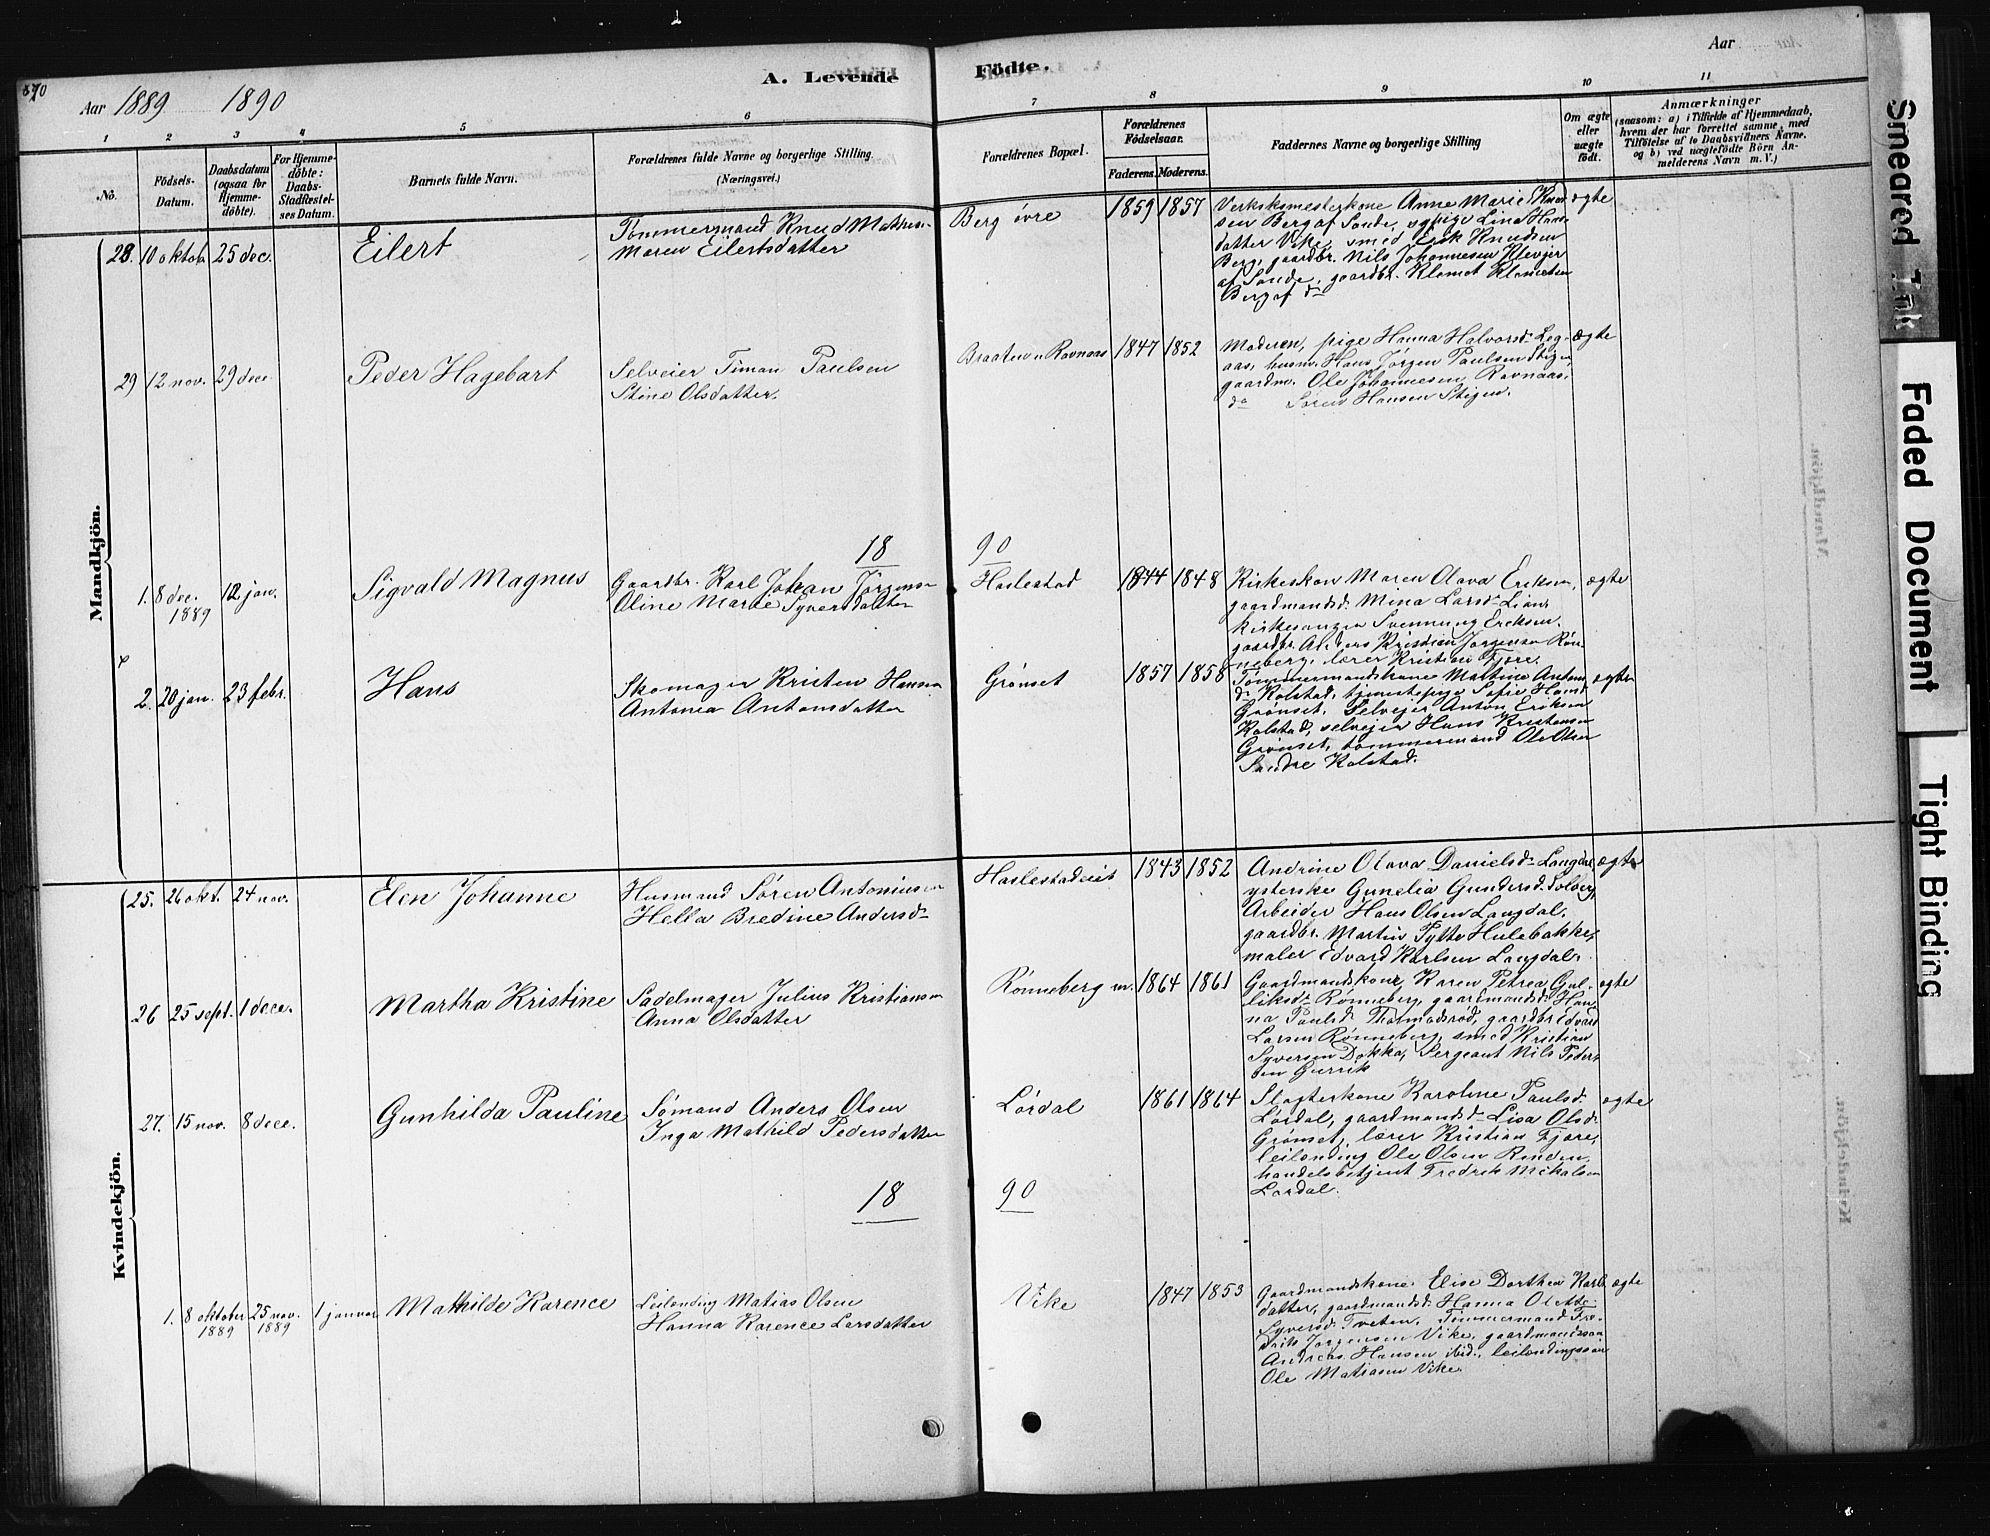 Aar 1889 1890
A. Levende
Födte.
Aar
1 2 3 4 5 6 7 8 9 10 11
No.
Födsels-Datum.
Daabsdatum (ogsaa for Hjemme-döbte).
For Hjemme-döbte: Daabs-Stadfæstel-ses Datum.
Barnets fulde Navn.
Forældrenes fulde Navne og borgerlige Stilling.
(Næringsvei.)
Forældrenes Bopæl.
Forældrenes Födselsaar.
Faderens. Moderens.
Faddernes Navne og borgerlige Stilling
Om ægte eller uægte födt.
Anmærkninger
(saasom: a) i Tilfælde af Hjemmedaab,
hvem der har forrettet samme, med
Tilföielse af to Daabsvidners Navne.
og b) ved uægtefödte Börn An-
melderens Navn m. V.)
Mandkjön.
28. 10 oktob. 25 dec. Eilert
Tömmermand Knud Mathis.
Maren Eilertsdatter
Berg övre 1859 1857
Anne Marie Knud
sen Berg af Sande, pige Lina Hans
datter Vike, smed Erik Knudsen
Berg, gaardbr. Nils Johannesen Klevjer
af Sande, gaardbr. Klemet Klemetsen
Berg af do
ægte
29 12 nov. 29 dece. Peder Hagebart
Selveier Timan Paulsen
Stine Olsdatter.
Braaten u Ravnaas 1847 1852
Moderen, pige Hanna Halvorsd. Leg-
aas, husm. Hans Jørgen Paulsen Stigen
gaardm. Ole Johannesen Ravnaas,
do Søren Hansen Stigen.
ægte
18 90
1. 8 dec. 1889 12 jan. Sigvald Magnus
Gaardbr. Karl Johan Jørgens
Oline Marie Syversdatter
Haslestad 1844 1848
Kirkeskon Maren Olava Eriksen,
gaardmandsd. Mina Larsd. Lian,
kirkesanger Svennung Eriksen.
gaardbr. Anders Kristian Jørgensen Røn-
neberg, lærer Kristian Fjøre.
ægte
2. 20 jan. 23 febr. Hans
Skomager Kristen Hansen
Antonia Antonsdatter
Grønset 1857 1858
Tømmermandskone Martine Antons
d. Kolstad, tjenestepige Sofie Hansd
Grønset, Selvejer Anton Eriksen
Kolstad, selvejer Hans Kristensen
Grønset, tømmermand Ole Olsen
Søndre Kolstad.
ægte
Kvindekjön.
25. 26 okt. 24 nov. Elen Johanne
Husmand Søren Antoniusen
Hella Bredine Andersd.
Haslestadeiet 1843 1852
Andrine Olava Danielsd. Langdal,
Gunelia Gundersd. Solberg,
Arbeider Hans Olsen Langdal,
gaardbr. Martin Tytto Hulebakke,
maler Edvard Karlsen Langdal.
ægte
26 25 sept. 1 dece. Martha Kristine
Sadelmager Julius Kristiansen
Anna Olsdatter
Rønneberg m. 1864 1861
Gaardmandskone Karen Petrea Gul-
liksd. Rønneberg, gaardmandsd. Han-
na Paulsd. Thomasrød, gaardbr. Edvard
Larsen Rønneberg, smed Kristian
Syversen Dokka, Sergeant Nils Peder-
sen
ægte
27. 15 nov. 8 dece. Gunhilda Pauline
Sømand Anders Olsen
Inga Mathild Pedersdatter
Lørdal 1861 1864
Slagterkone Karoline Paulsd.
Lørdal, gaardmandsd. Lisa Olsd.
Grønset, lærer Kristian Fjøre,
leilending Ole Olsen
handelsbetjent Fredrik Mikalsen
Lørdal.
ægte
18 90
1. 8 oktober 1889 25 nov. 1889 1 januar Mathilde Karence
Leilending Matias Olsen
Hanna Karence Larsdatter
Vike 1847 1853
Gaardmandskone Elise Dorthea Karls
datter, gaardmandsd. Hanna Olette
Syversd. Tveten, Tømmermand Fre-
drik Jørgensen Vike, gaardmandssøn
Andreas Hansen ibid., leilendingssøn
Ole Matiasen Vike.
ægte
Smeared Ink
Faded Document
Tight Binding